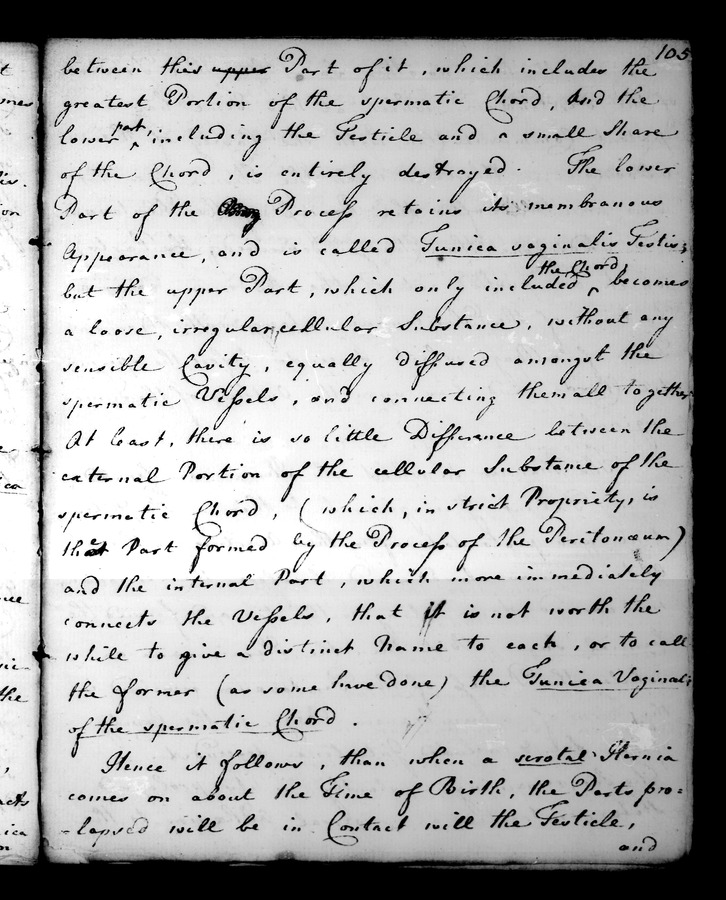 105
between this upper Part of it, which includes the
greatest Portion of the spermatic Chord, And the
lower part, including the Testicle and a small Share
of the Chord, is entirely destroyed. The lower
Part of the Process retains its membranous
Appearance, and is called Tunica vaginalis Testis;
but the upper Part, which only included the Chord, becomes
a loose, irregular, cellular Substance, without any
sensible Cavity, equally diffused amongst the
spermatic Vessels, and connecting them all together.
At least, there is so little Difference between the
external Portion of the cellular Substance of the
spermatic Chord, (which, in strict Propriety, is
that Part formed by the Process of the Peritonæum)
and the internal Part, which more immediately
connects the Vessels, that it is not worth the
while to give a distinct Name to each, or to call
the former (as some have done) the Tunica Vaginalis
of the spermatic Chord.
Hence it follows, than when a scrotal Hernia
comes on about the Time of Birth, the Parts pro=
-lapsed will be in Contact will the Testicle,
and